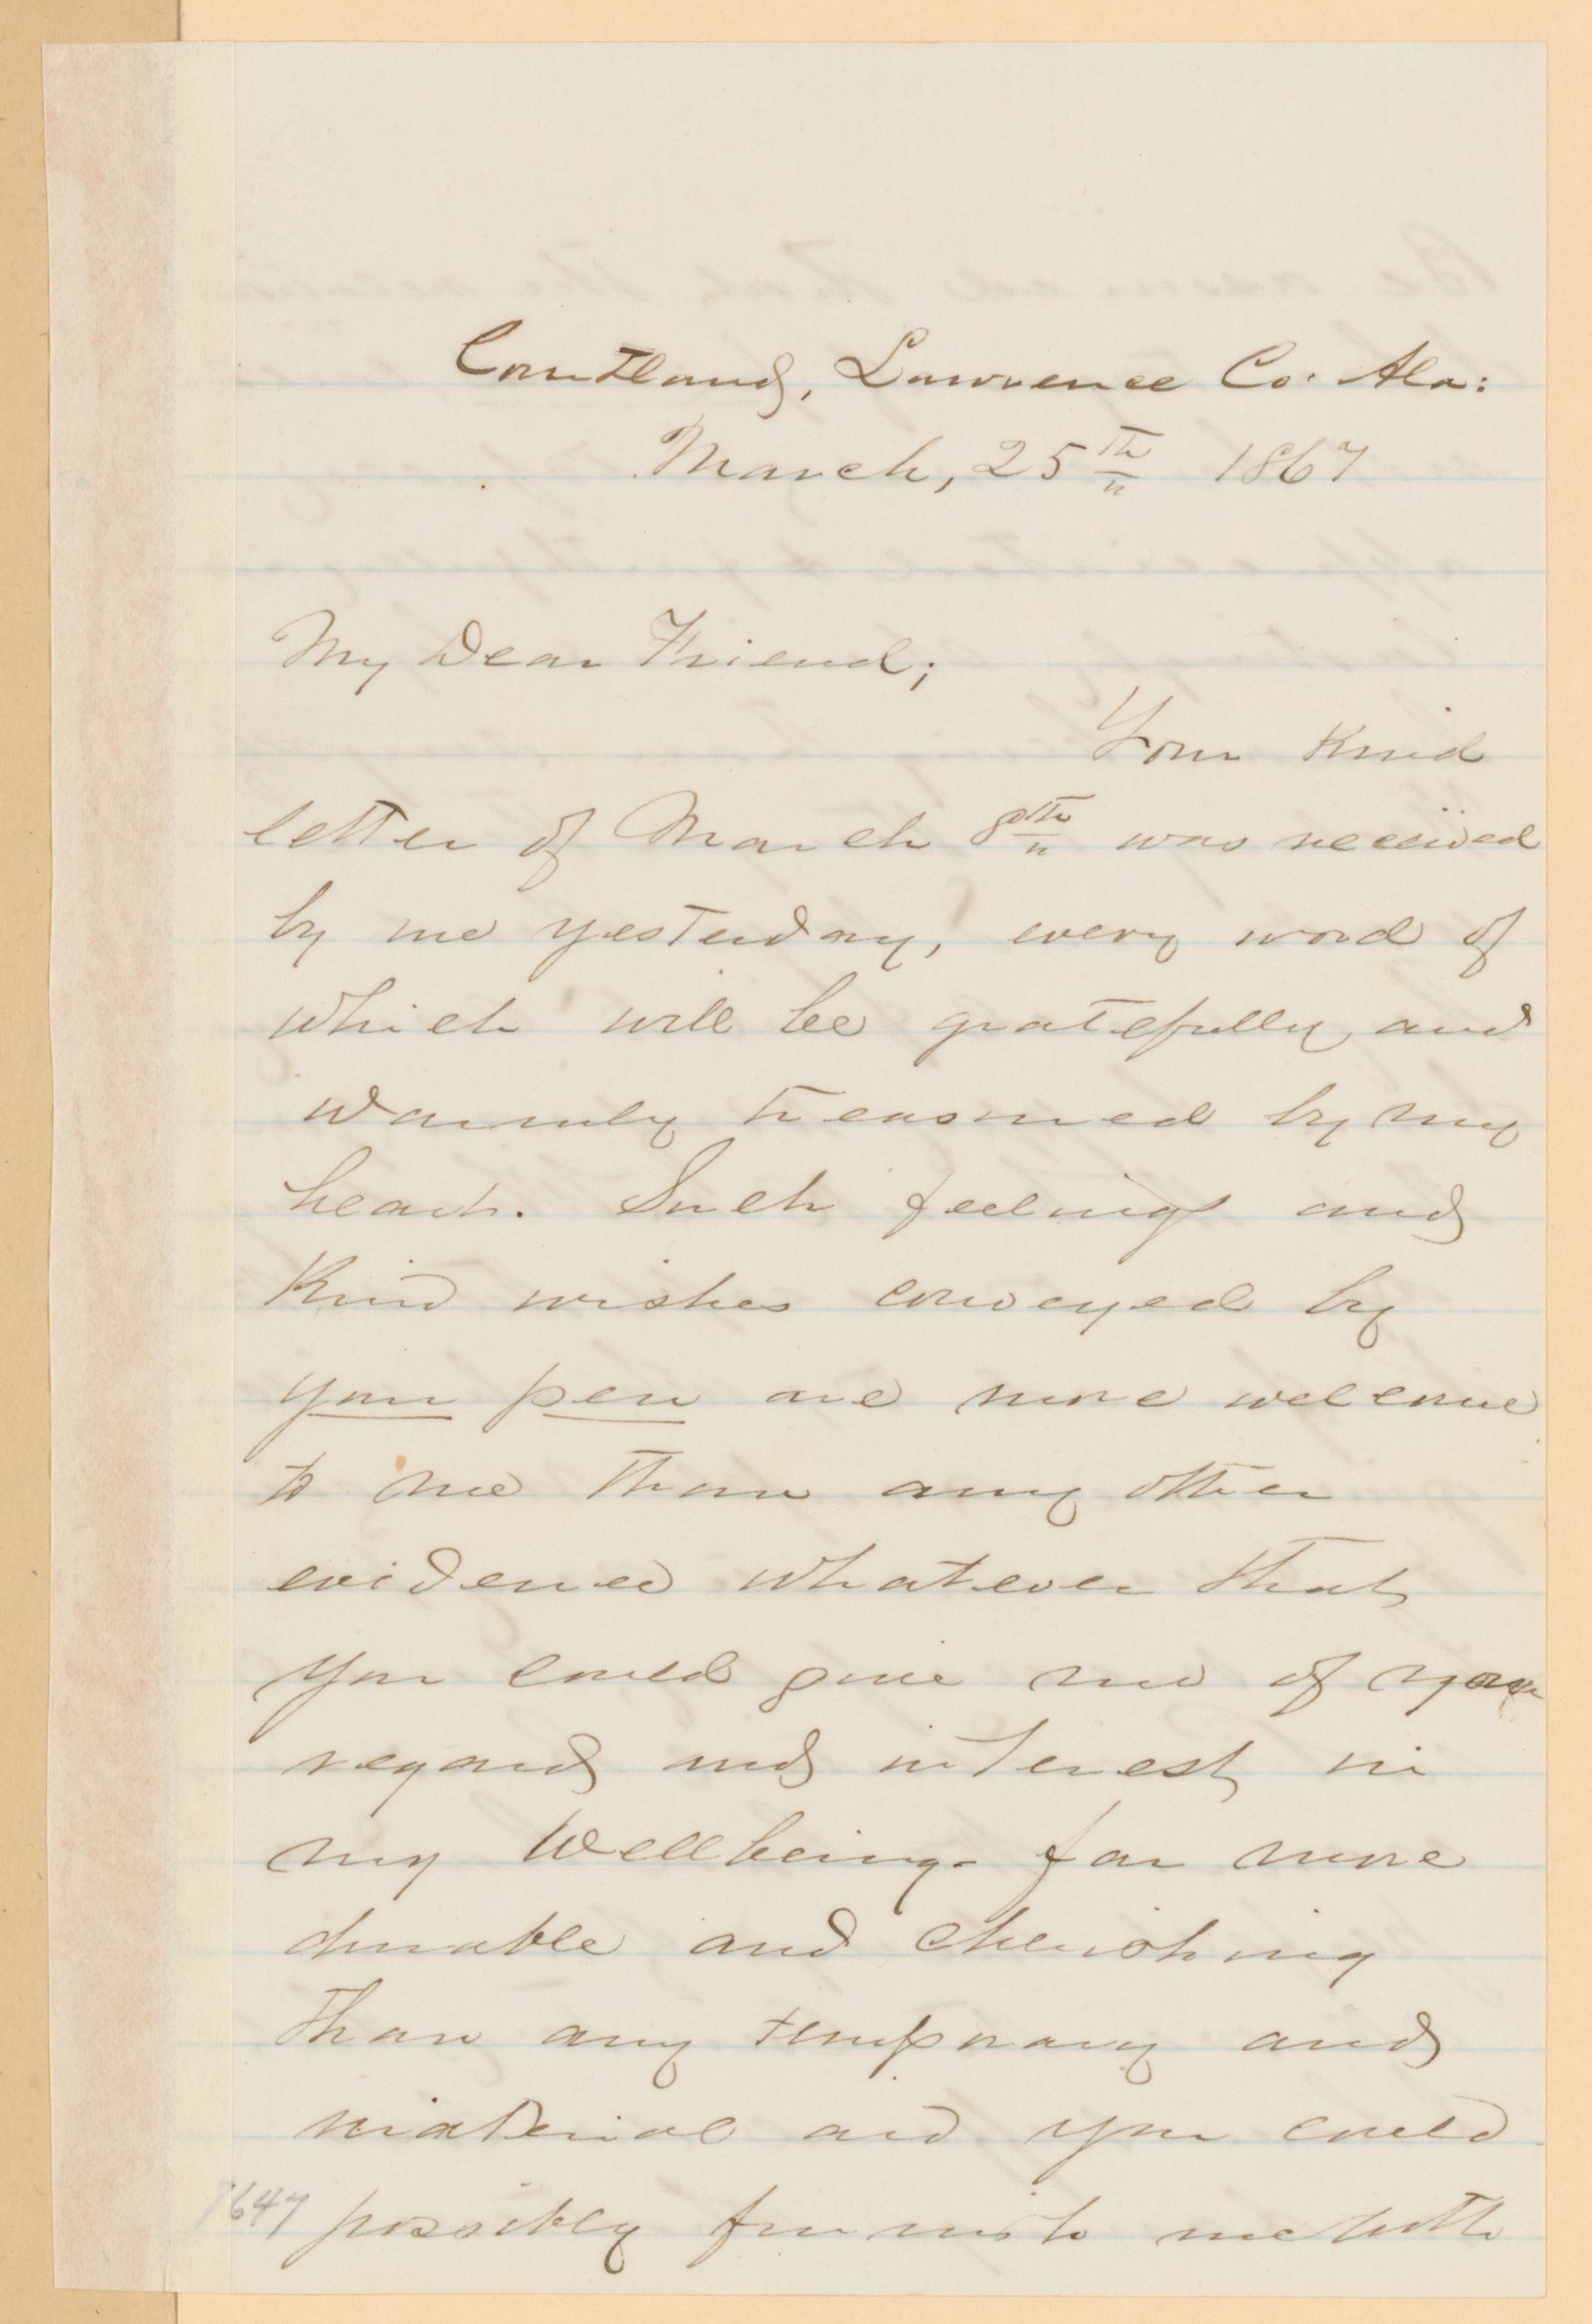 Courtland, Lawrence Co: Ala:
March, 25th 1867
My Dear Friend;
Your Kind
letter of March 8th was received
by me yesterday, every word of
which will be gratefully and
warmly treasured by my
heart. Such feelings and
Kind wishes conveyed by
your pen are more welcome
to me than any other
evidence whatever that
you could give me of your
regard and interest in
my Wellbeing - far more
durable and cherishing
than any temporary and
material aid you could
possibly furnish me with